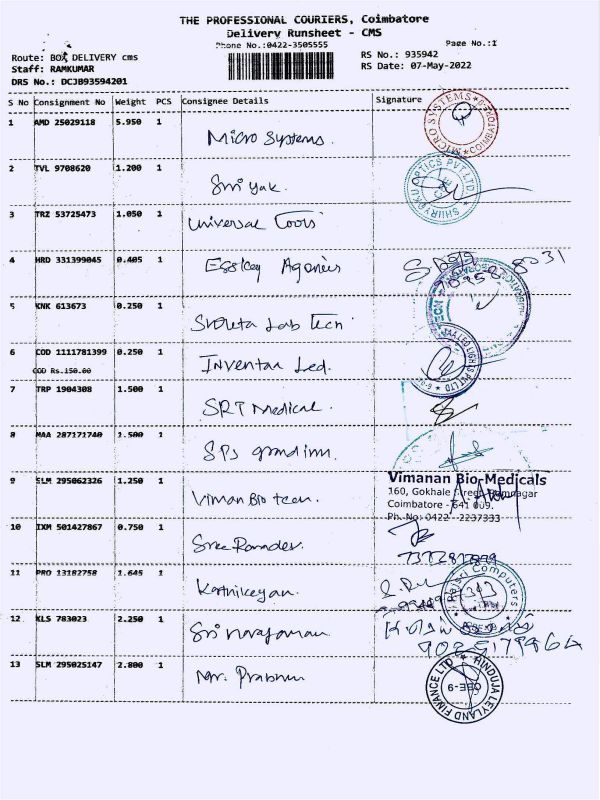 THE PROFESSIONAL COURIERS, Coimbatore
Delivery Runsheet - CMS
Phone No.:0422-3505555
Page No.:1
Route: BOX DELIVERY cms
RS No.: 935942
Staff: RAMKUMAR
RS Date: 07-May-2022
DRS No.: DCJB93594201
S No Consignment No Weight PCS Consignee Details Signature
1 AMD 25029118 5.950 1 Micro Systems.
MICRO SYSTEMS COIMBATORE
2 TVL 9708620 1.200 1 Sri yak.
OPTICS PVT LTD
3 TRZ 53725473 1.050 1 Universal Tools
4 HRD 331399045 0.405 1 Esskey Agencies
5 KNK 613673 0.250 1 Shweta Lab Tech
6 COD 1111781399 0.250 1 Inventaa Led.
COD Rs.150.00
7 TRP 1904308 1.500 1 SRT Medical.
8 MAA 287171740 1.500 1 SPs grand inn.
9 SLM 295062326 1.250 1 Viman Bio teen.
Vimanan Bio-Medicals
160, Gokhale Street, Ramnagar
Coimbatore - 641 009.
Ph. No: 0422 - 2237333
10 IXM 501427867 0.750 1 Sree Ramdev.
11 PRO 13182758 1.645 1 Karthikeyan.
Rajsri Computers
12 KLS 783023 2.250 1 Sri narayanan
13 SLM 295025147 2.800 1 Mr. Prabhu
HINDUJA LEYLAND FINANCE LTD